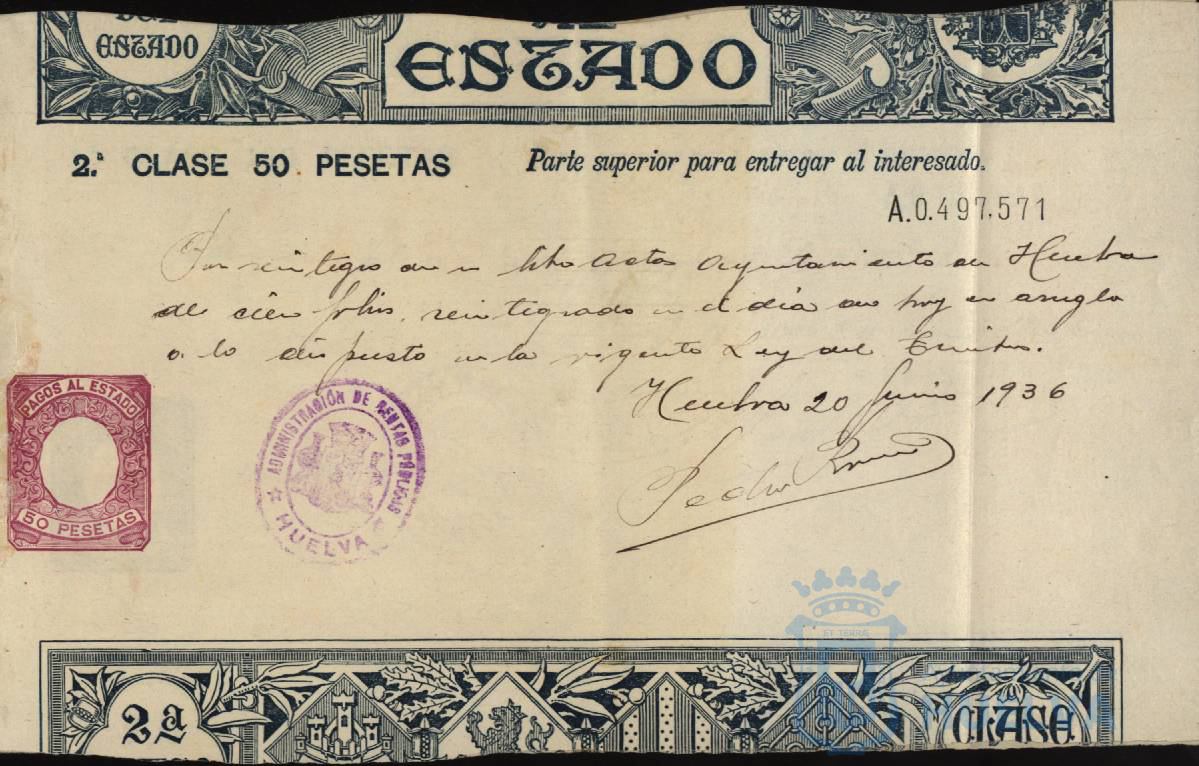 ESTADO
ESTADO
2.ª CLASE 50 PESETAS
Parte superior para entregar al interesado.
A.0.497,571
Por reintegro de un libro Actas Ayuntamiento de Huelva
de cien folios, reintegrado en el día de hoy en arreglo
a lo dispuesto en la vigente Ley del Timbre.
Huelva 20 Junio 1936
Pedro
PAGOS AL ESTADO
50 PESETAS
ADMINISTRACIÓN DE RENTAS PÚBLICAS
HUELVA
ET TERRÆ
2ª
CLASE